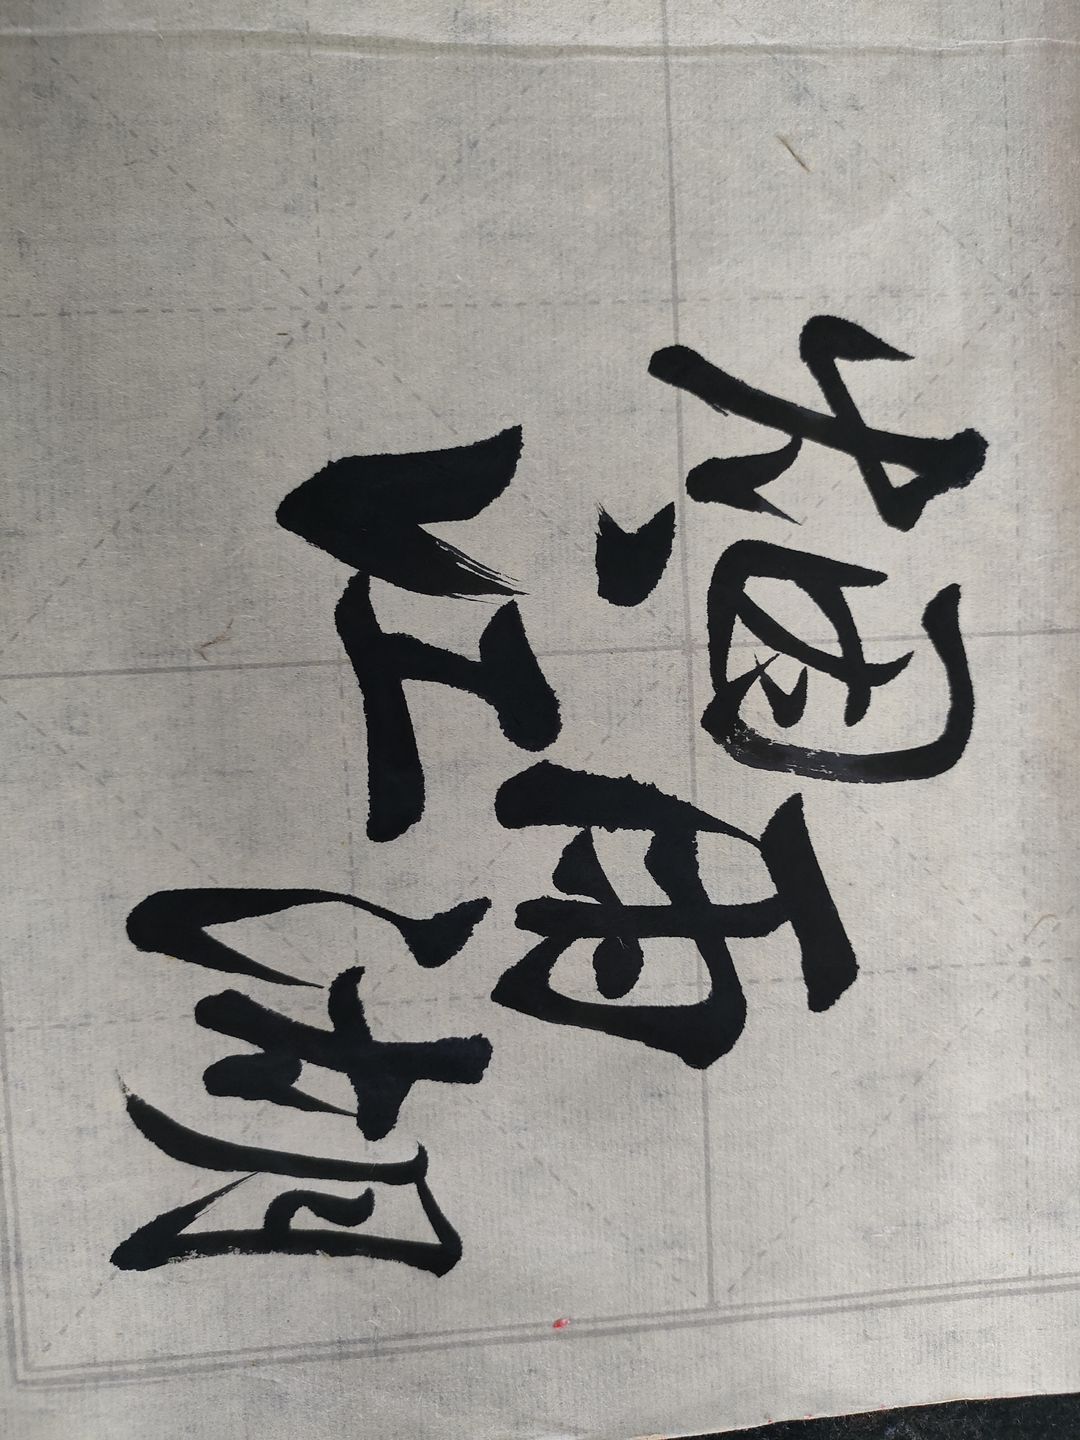 烟雨
江湖